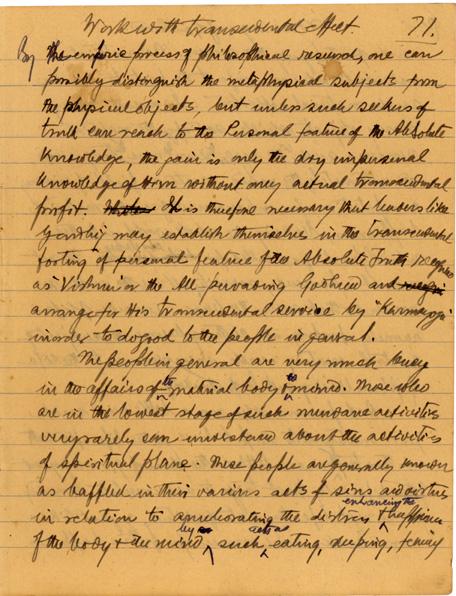 Work with transcendental effect. 71.
By the emperic process of philosophical research, one can
possibly distinguish the metaphysical subjects from
the physical objects, but unless such seekers of
truth can reach to the Personal feature of the Absolute
Knowledge, the gain is only the dry impersonal
knowledge of Him without any actual transcendental
profit. It is therefore necessary that leaders like
Gandhiji may establish themselves in the transcendental
footing of personal feature of the Absolute Truth
as 'Vishnu' or the All-pervading Godhead and
arrange for His transcendental service by "Karmayoga"
in order to do good to the people in general.
The people in general are very much busy
in the affairs of the material body & to mind. Those who
are in the lowest stage of such mundane activities
very rarely can understand about the activities
of spiritual plane. These people are generally known
as baffled in their various acts of sins and virtues
enhancing the
in relation to ameliorating the distress & happiness
by acts as
of the body & the mind, such eating, sleeping,